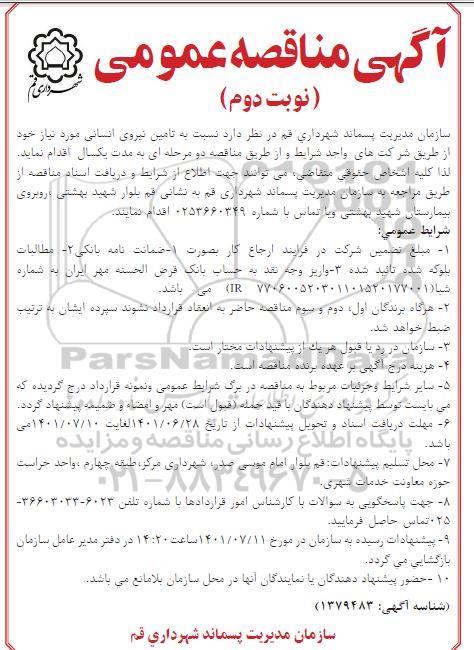 آگهی مناقصه عمومی
(نوبت دوم)
شهرداری قم
سازمان مدیریت پسماند شهرداري قم در نظر دارد نسبت به تامین نیروی انسانی مورد نیاز خود
از طریق شر کت های واجد شرایط و از طریق مناقصه دو مرحله ای به مدت یکسال اقدام نماید.
لذا کلیه اشخاص حقوقي متقاضی، می توانند جهت اطلاع از شرایط و دریافت اسناد مناقصه از
طریق مراجعه به سازمان مدیریت پسماند شهرداری قم به نشانی قم بلوار شهید بهشتی ،روبروی
بیمارستان شهید بهشتی ویا تماس با شماره ۰۲۵۳۶۶۰۳۴۹ اقدام نمایند.
شرایط عمومي:
۱- مبلغ تضمین شرکت در فرایند ارجاع کار بصورت ۱-ضمانت نامه بانکی۲- مطالبات
بلوکه شده تائید شده ۳-واریز وجه نقد به حساب بانک قرض الحسنه مهر ایران به شماره
شبا(IR ۷۷۰۶۰۰۵۲۰۳۰۱۱۰۱۵۲۰۱۷۷۰۰۱) می باشد.
۲- هرگاه برندگان اول، دوم و سوم مناقصه حاضر به انعقاد قرارداد نشوند سپرده ایشان به ترتیب
ضبط خواهد شد.
۳- سازمان در رد یا قبول هر یك از پیشنهادات مختار است.
۴- هزینه درج آگهی بر عهده برنده مناقصه است.
۵- سایر شرایط وجزئیات مربوط به مناقصه در برگ شرایط عمومی ونمونه قرارداد درج گردیده که
مي بایست توسط پیشنهاد دهندگان با قید جمله (قبول است) مهر و امضاء و ضمیمه پیشنهاد گردد.
۶- مهلت دریافت اسناد و تحویل پیشنهادات از تاریخ ۱۴۰۱/۰۶/۲۸لغایت ۱۴۰۱/۰۷/۱۰می
باشد.
۷- محل تسلیم پیشنهادات: قم بلوار امام موسی صدر، شهرداری مرکز،طبقه چهارم ،واحد حراست
حوزه معاونت خدمات شهری.
۸- جهت پاسخگویی به سوالات با کارشناس امور قراردادها با شماره تلفن ۶۰۲۳-۳۶۶۰۳۰۳۳-
۰۲۵تماس حاصل فرمایید.
۹- پیشنهادات رسیده به سازمان در مورخ ۱۴۰۱/۰۷/۱۱ساعت۱۴:۲۰ در دفتر مدیر عامل سازمان
بازگشایي مي گردد.
۱۰ -حضور پیشنهاد دهندگان یا نمایندگان آنها در محل سازمان بلامانع می باشد.
(شناسه آگهی: ۱۳۷۹۴۸۳)
سازمان مدیریت پسماند شهرداري قم
ParsNamadData
پایگاه اطلاع رسانی مناقصه و مزایده
۰۲۱-۸۸۳۴۹۶۷۰-۵